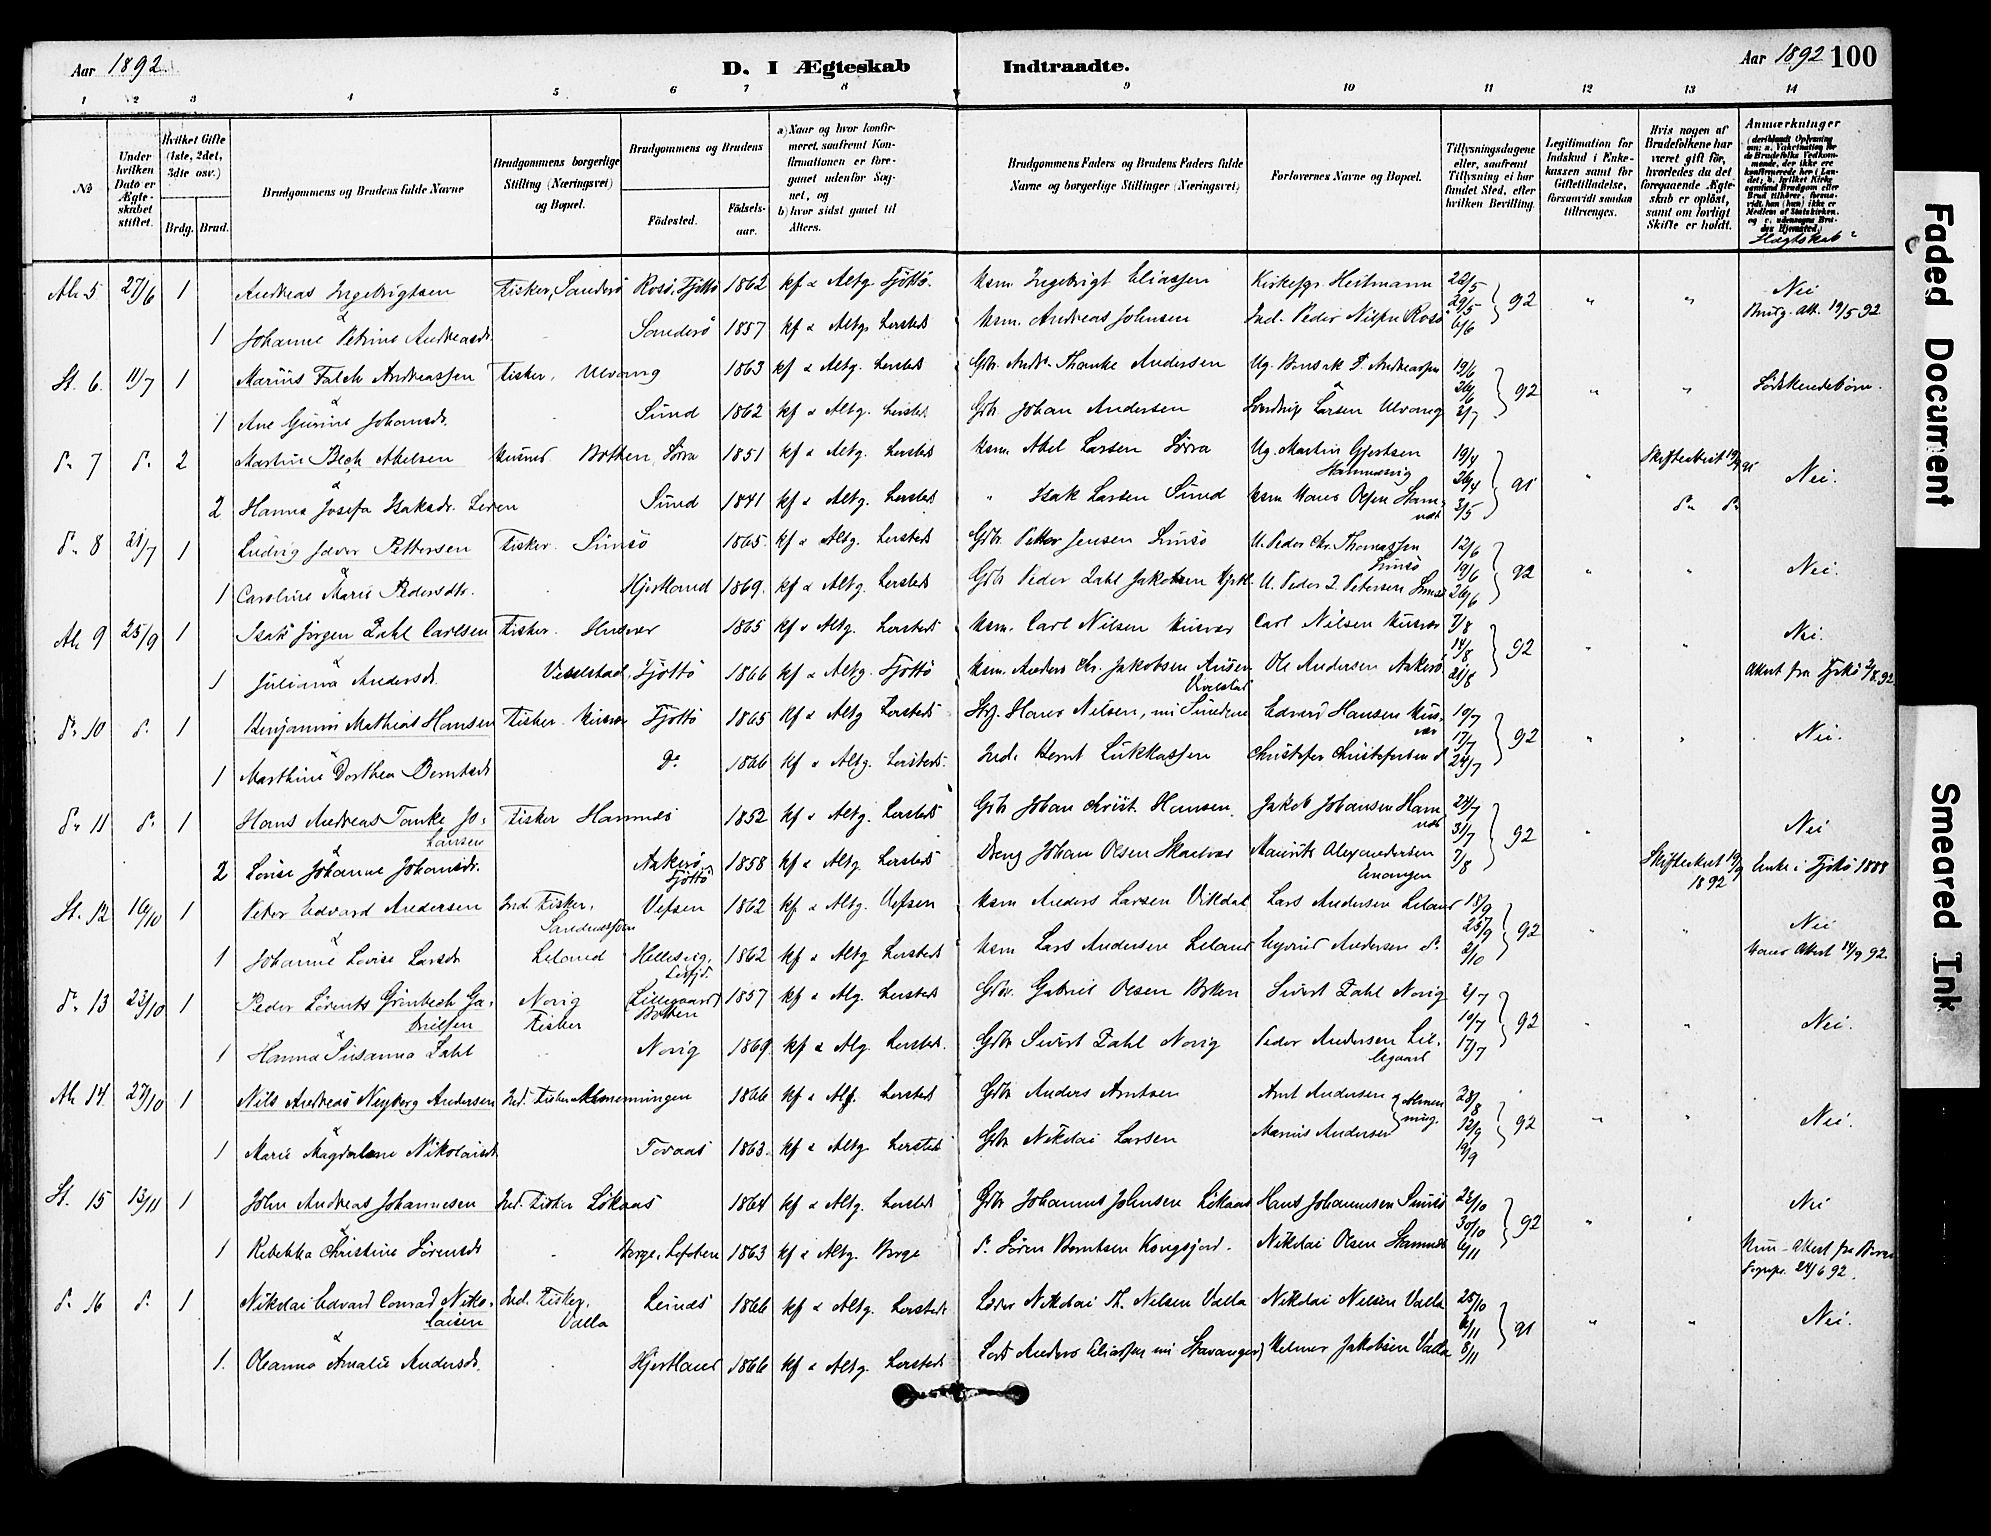 Aar 1892.
D. I Ægteskab Indtraadte.
Aar 1892 100
1 2 3 4 5 6 7 8 9 10 11 12 13 14
No
Under hvilken Dato er Ægteskabet stiftet.
Hvilket Gifte (1ste, 2det, 3die osv.)
Brdg. Brud.
Brudgommens og Brudens fulde Navne
Brudgommens borgerlige Stilling (Næringsvei) og Bopæl.
Brudgommens og Brudens
Födested.
Födselsaar.
a) Naar og hvor konfirmeret, saafremt Konfirmationen er foregaaet udenfor Sognet, og
b) hvor sidst gaaet til Alters.
Brudgommens Faders og Brudens Faders fulde Navne og borgerlige Stillinger (Næringsvei)
Forlovernes Navne og Bopæl.
Tillysningsdagene eller, saafremt Tillysning ei har fundet Sted, efter hvilken Bevilling.
Legitimation for Indskud i Enkekassen samt for Giftetilladelse, forsaavidt saadan tiltrænges.
Hvis nogen af Brudefolkene har været gift för, hvorledes da det foregaaende Ægteskab er oplöst, samt om lovligt Skifte er holdt.
Anmærkninger
Slægtskab?
Al. 5 27/6 1 Andreas Ingebrigtsen Fisker, Sandersö Rosö, Tjöttö 1862 kf & Altg. Tjöttö. Hsm. Ingebrigt Eliassen Kirkesgr Heitmann 22/5 " " Nei
& 29/5 92 Attest 19/5 92
1 Johanne Petrine Andreasdr. Sandersö 1857 kf & Altg. hersteds Hsm. Andreas Johnsen Ind. Peder Nilsen Rosö 6/6
St. 6. 11/7 1 Marius Falch Andreassen Fisker, Ulvang 1863 kf & Altg. hersteds Gbr. Andr. Thanke Andersen Ug. Bonsak P. Andreassen 19/6 " " Södskendebörn.
& 26/6 92
1 Ane Gurine Johansdr. Sund 1862 kf & Altg. hersteds Gbr Johan Andersen Larsen Ulvang 3/7
D. 7 D. 2 Martin Bech Abelsen Husmd Botten, Sörra 1851 kf & Altg. hersteds Hsm. Abel Larsen Sörra Ug. Martin Gjertsen 19/4 " Skifteattest Nei.
& 26/4 91
2 Hanna Josefa Isaksdr. Leren Sund 1841 kf & Altg. hersteds " Isak Larsen Sund Hsm Hans Olsen Hamnes 3/5 D. D.
D. 8 21/7 1 Ludvig Jæver Pettersen Fisker. Sunsö 1865. kf & Altg. hersteds Gbr. Petter Jensen Sunsö U. Peder Chr. Thomassen 12/6 " " Nei.
& Sunsö 19/6 92
1 Caroline Marie Pedersdtr. Hjertland 1869. kf & Altg. hersteds Gbr Peder Zahl Jakobsen Hjertl. U. Peder Z. Petersen Sunsö 26/6
Al. 9 25/9 1 Isak Jörgen Zahl Carlsen Fisker. Husvær 1865 kf & Altg. hersteds Hsm. Carl Nilsen Husvær Carl Nilsen Husvær 7/8 " " Nei.
& 14/8 92
1 Juliana Andersdr. Visselstad, Tjöttö 1866 kf & Altg. Tjöttö Hsm. Anders Chr. Jakobsen Ole Andersen Aakerö 21/8 Attest fra Tjöttö 2/8 92
D. 10 D. 1 Benjamin Mathias Hansen Fisker. Husvær Tjöttö 1865 kf & Altg hersteds Hans Nilsen, nu Sundene Edvard Hansen Husvær 10/7 " " Nei.
& 17/7 92
1 Marthine Dorthea Berntsdr Do 1866 kf & Altg. hersteds. Ind. Bernt Lukkassen Christofer Christofersen D. 24/7
D. 11 D. 1 Hans Andreas Tanke Johansen Fisker Hamnes 1852 kf & Altg. hersteds Gbr Johan Christ. Hansen. Jakob Johansen Hamnes 24/7 " Nei
& 31/7 92
2 Lovise Johanne Johansdr. Aakerö, Tjöttö 1858 kf & Altg. hersteds Dreng Johan Olsen Skaalvær Maurits Alexandersen 7/8 Skifteattest 19/9 1892 Enke i Tjöttö 1888
St. 12 16/10 1 Peter Edvard Andersen Ind Fisker, Vefsen 1862 kf & Altg. Vefsen Hsm Anders Larsen Vikdal Lars Andersen Leland 18/9 " " Nei
& 25/9 92
1 Johanne Lovise Larsdr Leland Hellesvig, 1862 kf & Altg hersteds Hsm Lars Andersen Leland Andersen D. 2/10 Attest 14/9 92.
D. 13 23/10 1 Peder Lorents Grönbech Gabrielsen Norig Fisker (Lillegaard) Botten 1857 kf & Alg. hersteds Gbr. Gabriel Olsen Botten Sivert Zahl Norig 3/7 " " Nei.
& 10/7 92
1 Hanna Susanna Zahl Norig 1869. kf & Alg. hersteds. Gbr Sivert Zahl Norig Peder Andersen Lillegaard 17/7
Al. 14. 27/10 1 Nils Andreas Neyberg Andersen Ind. Fisker Almenningen 1866 kf & Alf. hersteds Gbr Anders Arntsen Arnt Andersen 28/8 " " Nei.
& Almenning. 12/9 92
1 Marie Magdalene Nikolaisdr Tovaas 1863. kf & Altg. hersteds Gbr Nikolai Larsen Marius Andersen 19/9
St. 15 13/11 1 John Andreas Johannesen Ind. Fisker Lökaas 1864 kf & Altg. hersteds Gbr Johannes Johnsen Lökaas Hans Johannesen Sunsö 23/10 " " Nei
& 30/10 92
1 Rebekka Christine Sörensdr Borge, Lofoten 1863 kf & Altg. Borge D. Sören Berntsen Kongsjord. Nikolai Olsen Hamnes 6/11 Attest fra Borge Sognepr. 24/6 92.
D. 16 D. 1 Nikolai Edvard Conrad Nikolaisen Ind. Fisker, Valla Leines 1866 kf & Altg. hersteds Nikolai Th. Nilsen Valla Nikolai Nilsen Valla 25/10 " " Nei.
& 6/11 91
1. Oleanna Amalie Andersdr. Hjertland 1866 kf & Altg. hersteds Anders Eliassen nu Stavanger) Helmer Jakobsen Valla 8/11
Faded Document
Smeared Ink